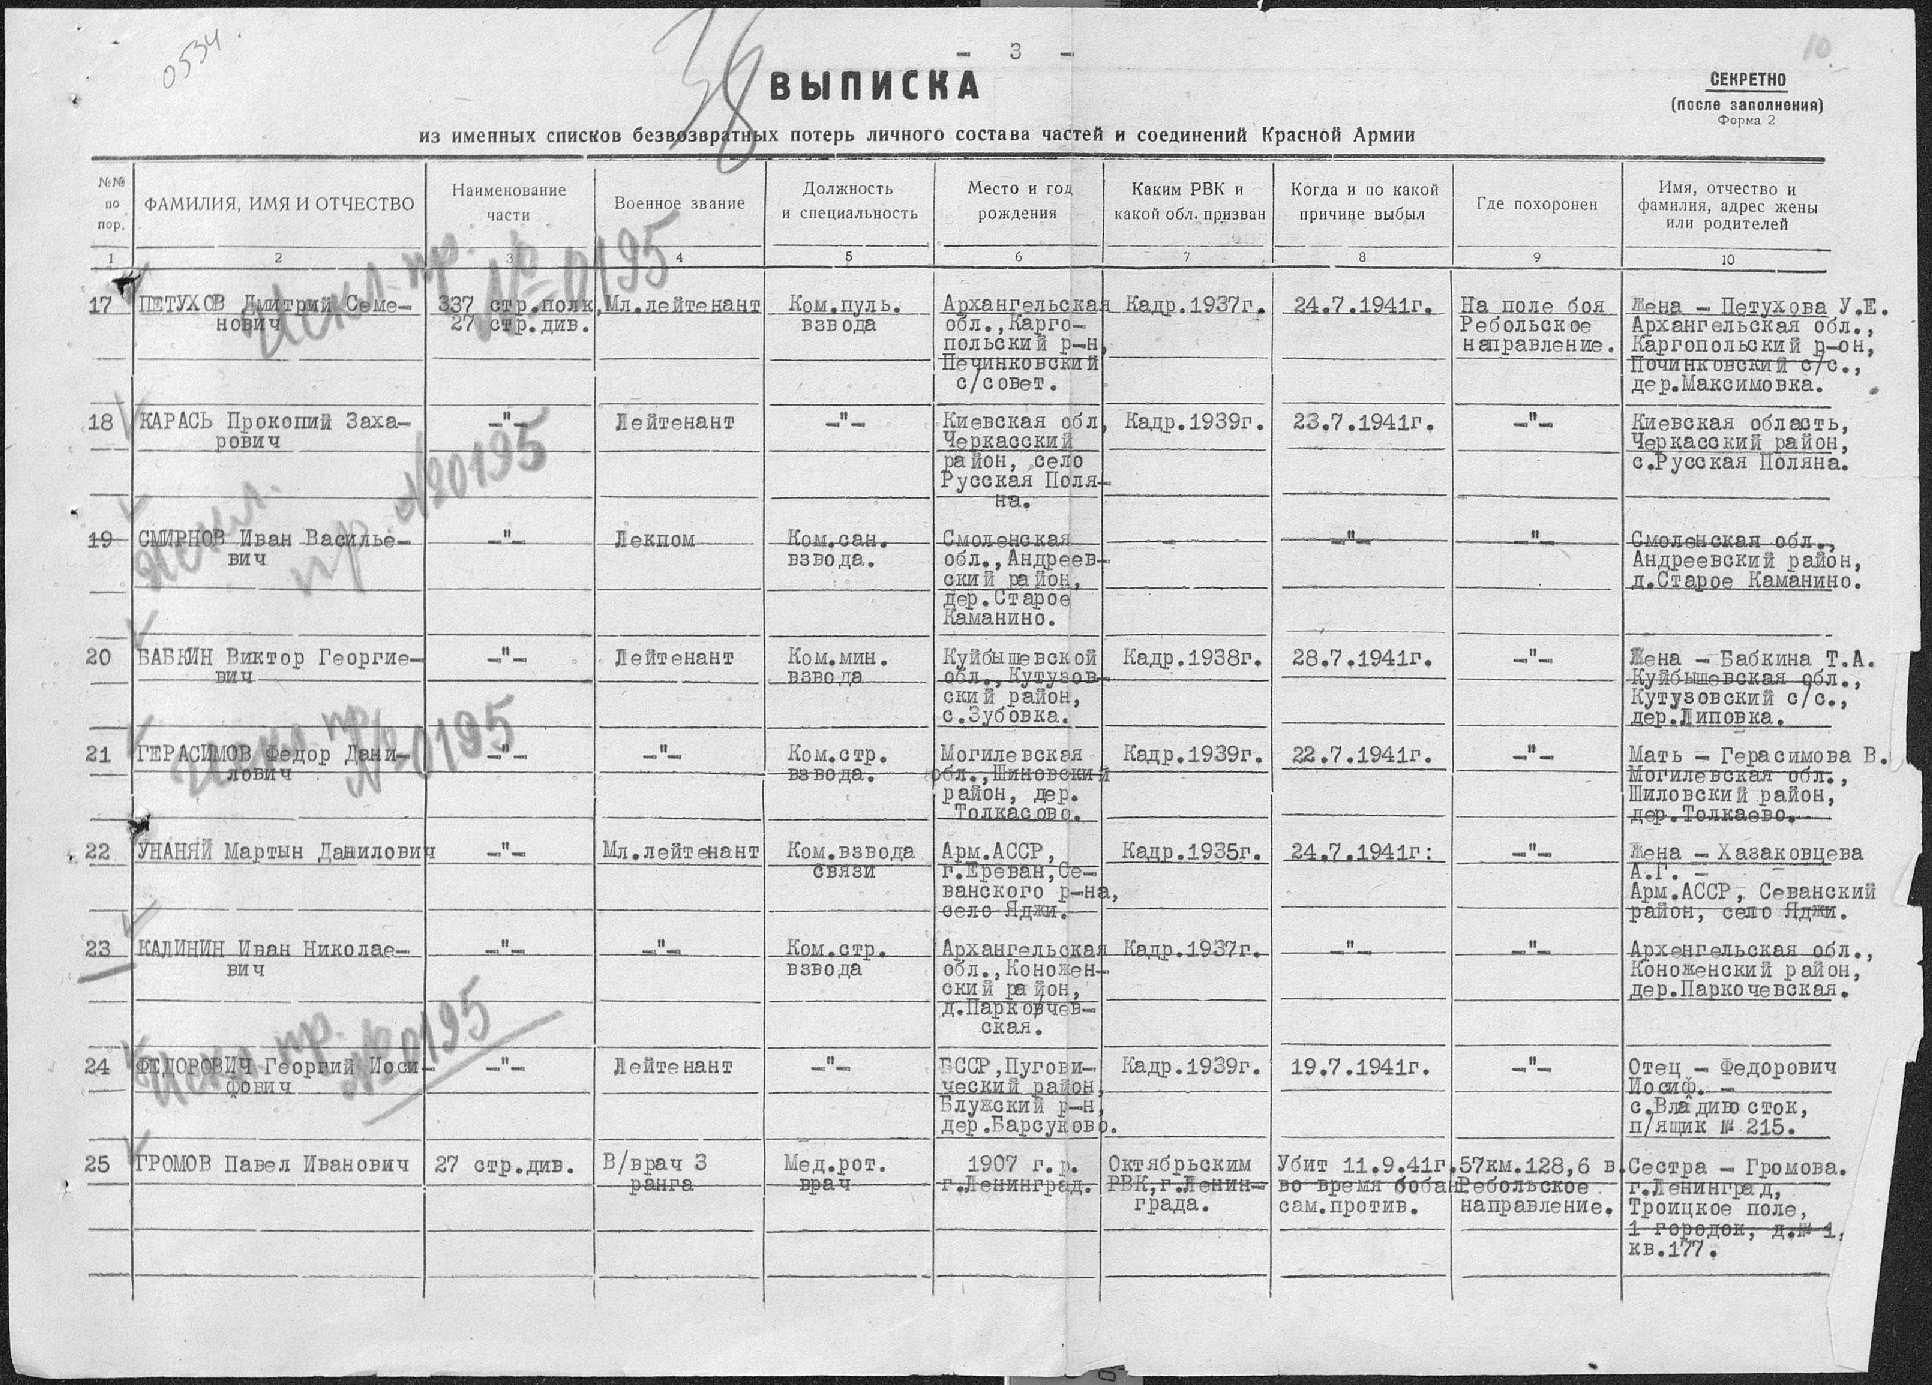 0534.
38
- 3 -
10.
ВЫПИСКА
СЕКРЕТНО
(после заполнения)
Форма 2
из именных списков безвозвратных потерь личного состава частей и соединений Красной Армии
№№ по пор.
ФАМИЛИЯ, ИМЯ И ОТЧЕСТВО
Наименование части
Военное звание
Должность и специальность
Место и год рождения
Каким РВК и какой обл. призван
Когда и по какой причине выбыл
Где похоронен
Имя, отчество и фамилия, адрес жены или родителей
1 2 3 4 5 6 7 8 9 10
Искл. пр. №0195
17 ПЕТУХОВ Дмитрий Семе- 337 стр.полк, Мл.лейтенант Ком.пуль. Архангельская Кадр.1937г. 24.7.1941г. На поле боя Жена - Петухова У.Е.
нович 27 стр.див. взвода обл.,Карго- Ребольское Архангельская обл.,
польский р-н, направление. Каргопольский р-он,
Печинковский Починковский с/с.,
с/совет. дер.Максимовка.
18 КАРАСЬ Прокопий Заха- -"- Лейтенант -"- Киевская обл, Кадр.1939г. 23.7.1941г. -"- Киевская область,
рович Черкасский Черкасский район,
район, село с.Русская Поляна.
Русская Поля-
на.
Искл. пр. №0195
19 СМИРНОВ Иван Василье- -"- Лекпом Ком.сан. Смоленская - -"- -"- Смоленская обл.,
вич взвода. обл.,Андреев- Андреевский район,
ский район, д.Старое Каманино.
дер.Старое
Каманино.
20 БАБКИН Виктор Георгие- -"- Лейтенант Ком.мин. Куйбышевской Кадр.1938г. 28.7.1941г. -"- Жена - Бабкина Т.А.
вич взвода обл.,Кутузов- Куйбышевская обл.,
ский район, Кутузовский с/с.,
с.Зубовка. дер.Липовка.
Искл пр №0195
21 ГЕРАСИМОВ Федор Дани- -"- -"- Ком.стр. Могилевская Кадр.1939г. 22.7.1941г. -"- Мать - Герасимова В.
лович взвода. обл.,Шиновский Могилевская обл.,
район, дер. Шиловский район,
Толкасово. дер.Толкаево.-
22 УНАНЯЙ Мартын Данилович -"- Мл.лейтенант Ком.взвода Арм.АССР, Кадр.1935г. 24.7.1941г: -"- Жена - Хазаковцева
связи г.Ереван,Се- А.Г. -
ванского р-на, Арм.АССР, Севанский
село Яджи. район, село Яджи.
23 КАЛИНИН Иван Николае- -"- -"- Ком.стр. Архангельская Кадр.1937г. -"- -"- Архенгельская обл.,
вич взвода обл.,Коножен- Коноженский район,
ский район, дер.Паркочевская.
д.Парковчев-
ская.
Искл. пр. №0195
24 ФЕДОРОВИЧ Георгий Иоси- -"- Лейтенант -"- БССР,Пугови- Кадр.1939г. 19.7.1941г. -"- Отец - Федорович
фович ческий район, Иосиф. -
Блужский р-н, с.Владивосток,
дер.Барсуково. п/ящик № 215.
25 ГРОМОВ Павел Иванович 27 стр.див. В/врач 3 Мед.рот. 1907 г.р. Октябрьским Убит 11.9.41г. 57км.128,6 в. Сестра - Громова.
ранга врач г.Ленинград. РВК,г.Ленин- во время бобан Ребольское г.Ленинград,
града. сам.против. направление. Троицкое поле,
1 городок, д.№ 1,
кв.177.